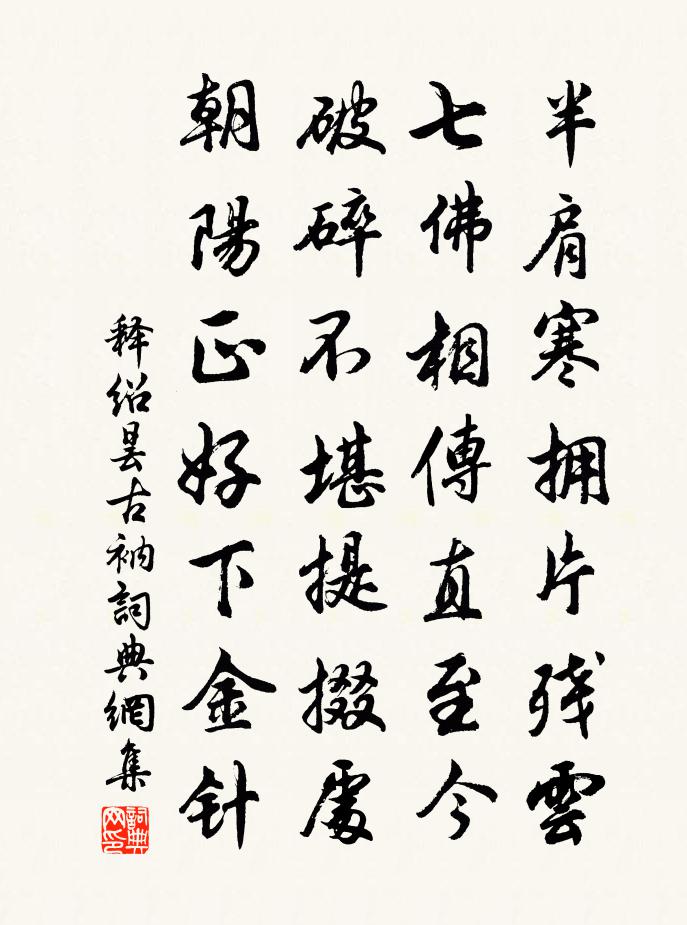 半肩寒拥片残雲
七佛相傳直至今
破碎不堪提掇處
朝陽正好下金针
释绍曇古衲詞典網集
詞典网印